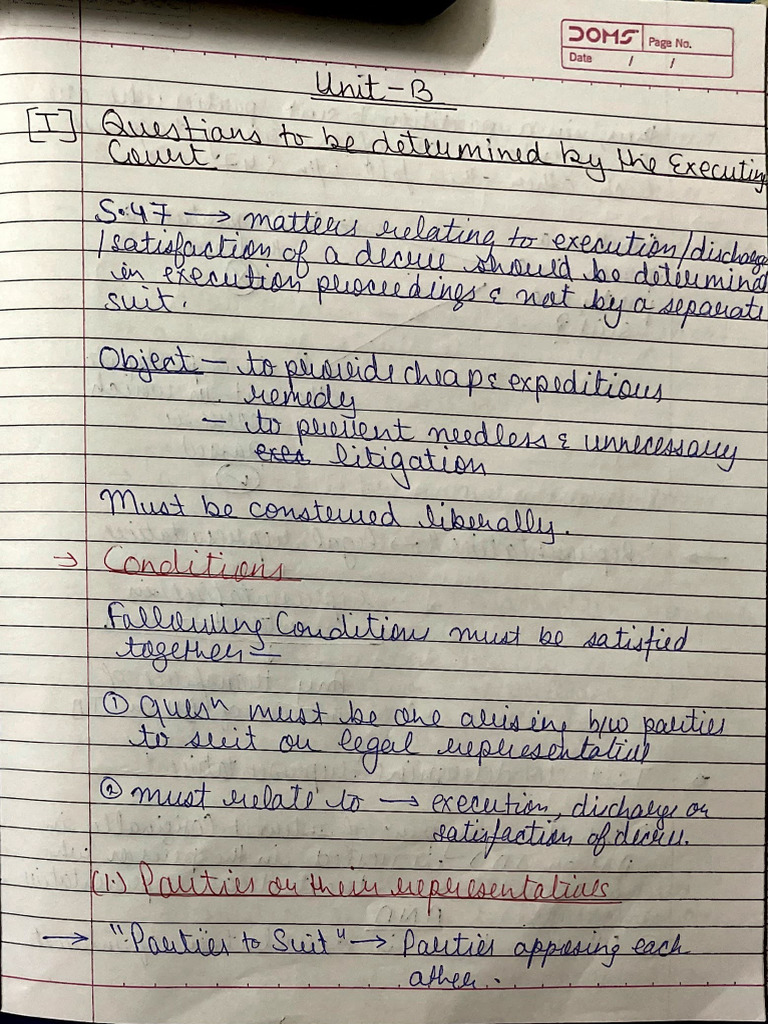 DOMS
Page No.
Date / /
Unit-B
[I] Questions to be determined by the Executing
Court.
S.47 → matters relating to execution/discharge
/satisfaction of a decree should be determined
in execution proceedings & not by a separate
suit.
Object — to provide cheap & expeditious
remedy
— to prevent needless & unnecessary
litigation
Must be construed liberally.
→ Conditions
Following Conditions must be satisfied
together —
① quesn must be one arising b/w parties
to suit or legal representative
② must relate to → execution, discharge or
satisfaction of decree.
(1.) Parties or their representatives
→ "Parties to Suit" → Parties opposing each
other.